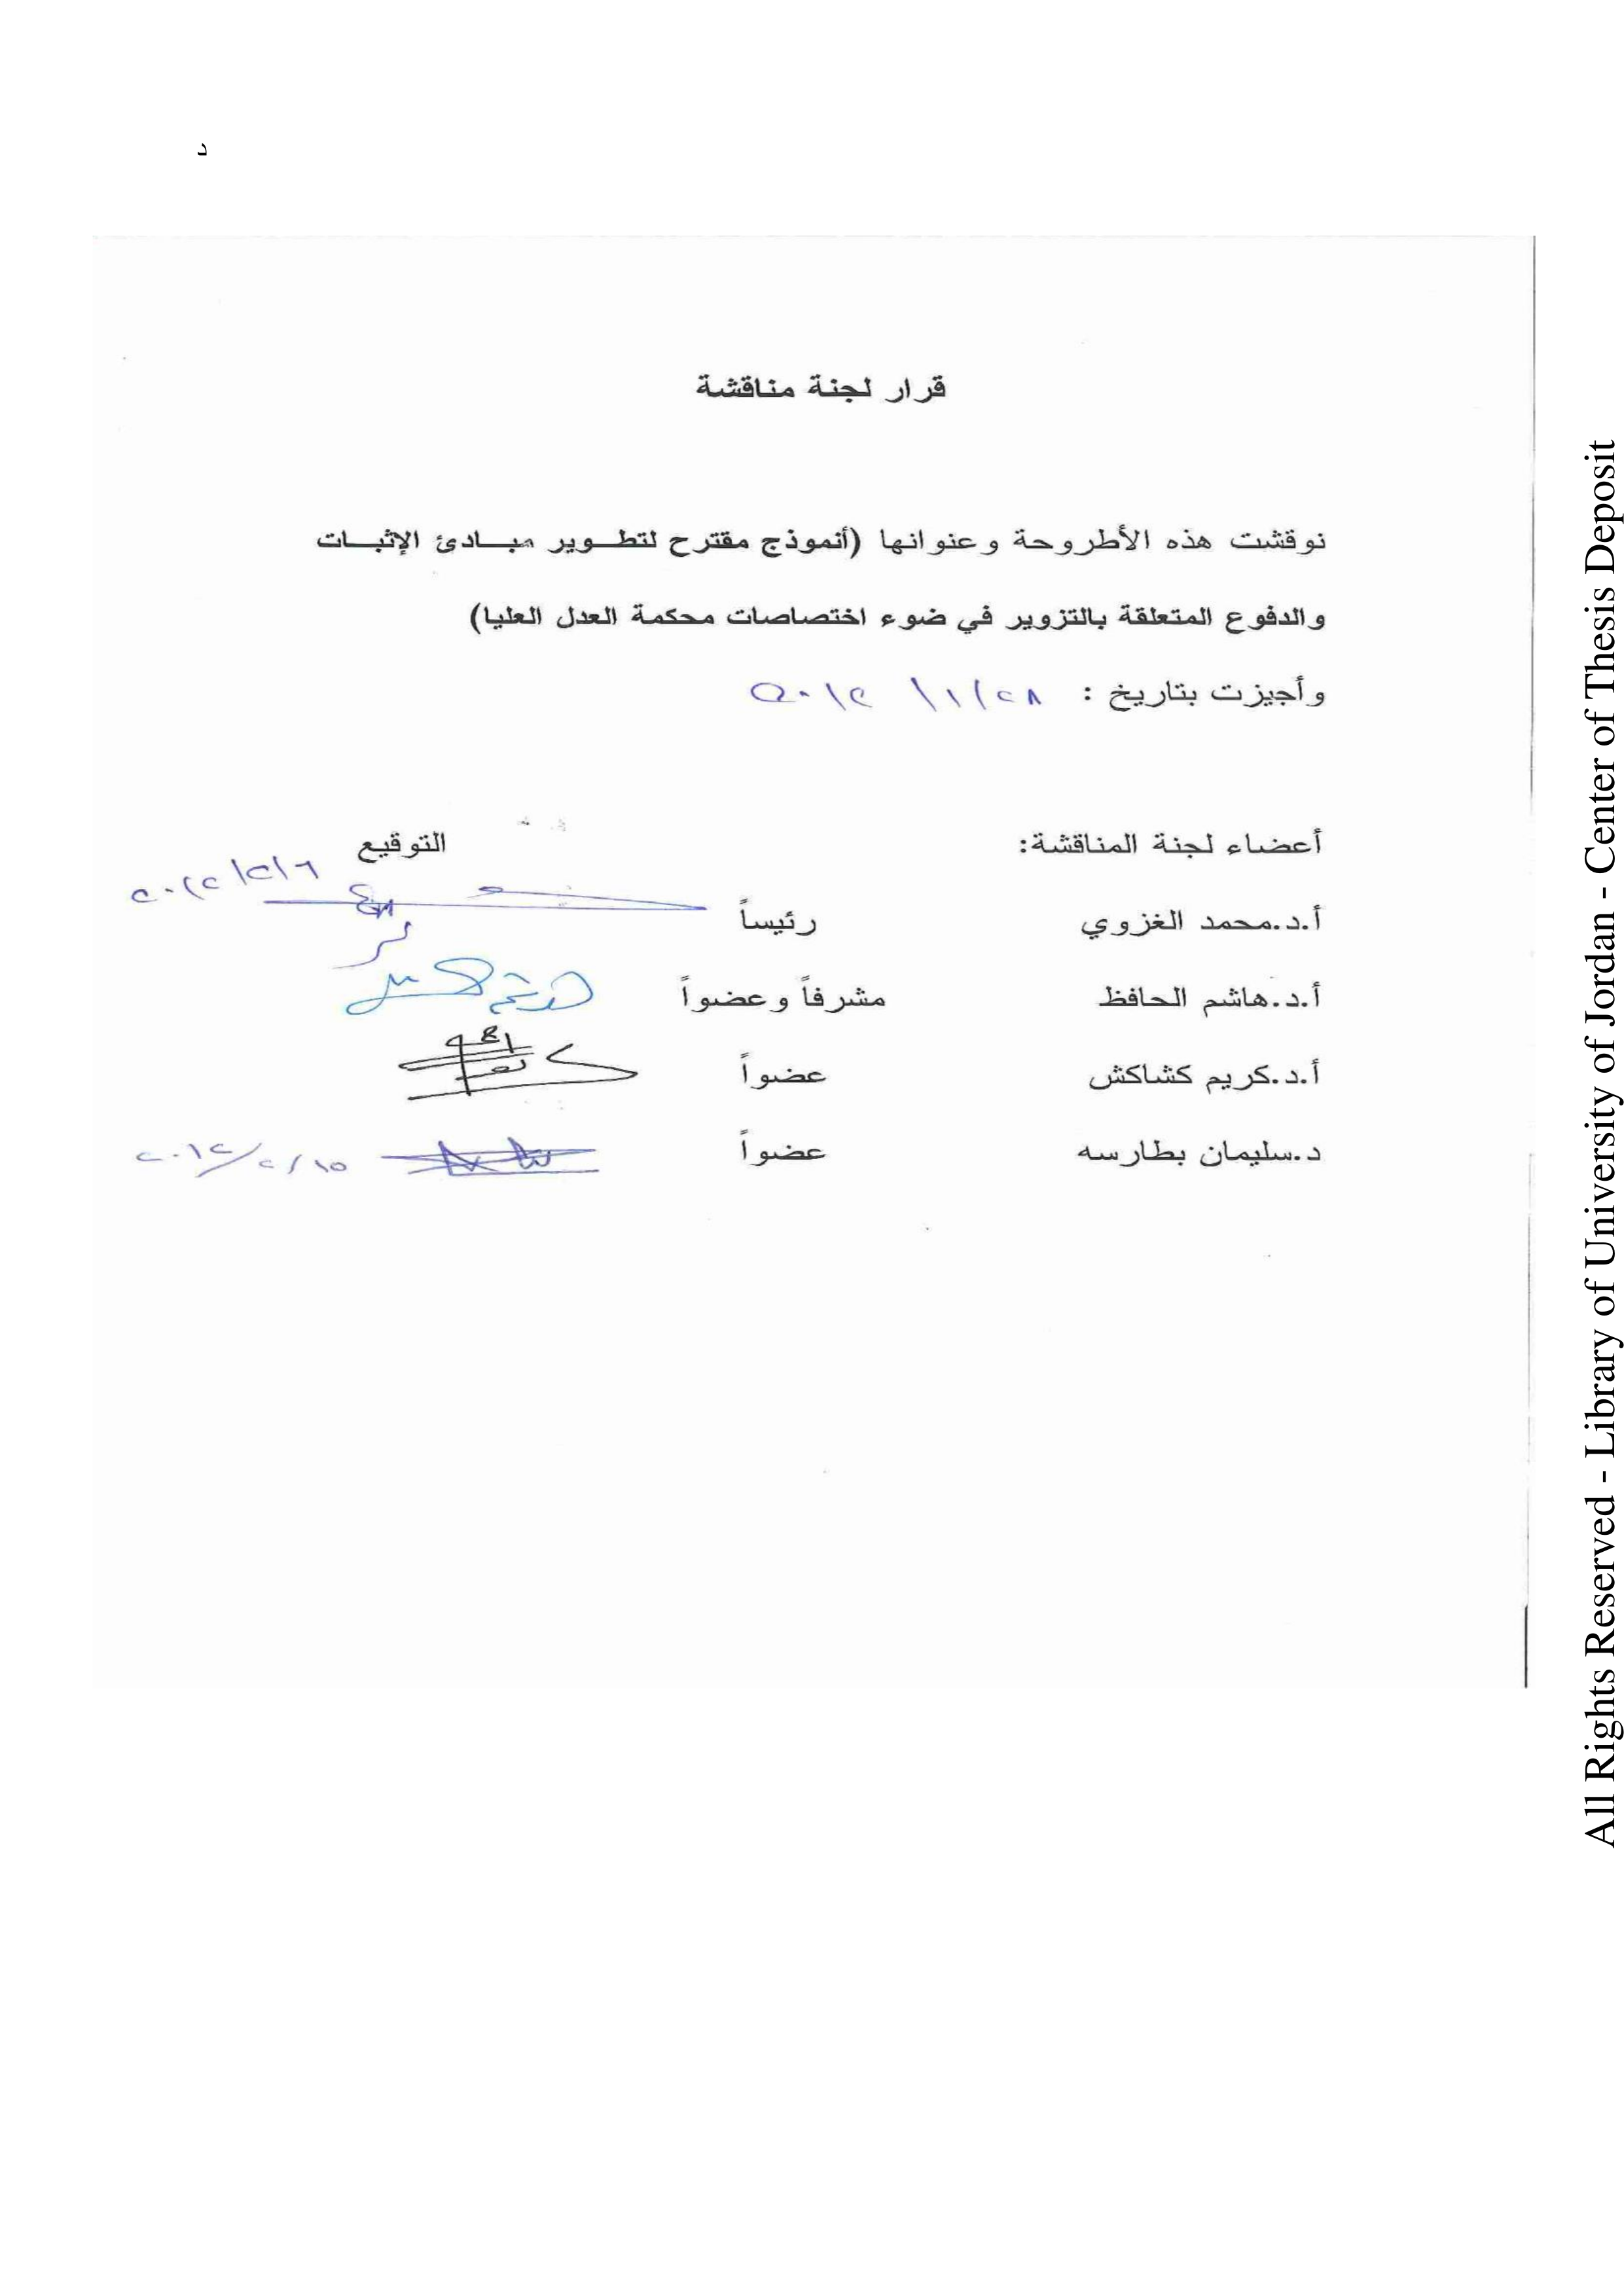 د
قرار لجنة مناقشة
نوقشت هذه الأطروحة وعنوانها (أنموذج مقترح لتطوير مبادئ الإثبات
والدفوع المتعلقة بالتزوير في ضوء اختصاصات محكمة العدل العليا)
وأجيزت بتاريخ : ٢٨/١/٢٠١٢
أعضاء لجنة المناقشة: التوقيع
أ.د.محمد الغزوي رئيساً ٢٠١٢/٢/٦
أ.د.هاشم الحافظ مشرفاً وعضواً
أ.د.كريم كشاكش عضواً
د.سليمان بطارسه عضواً ٢٠١٢/٢/١٥
All Rights Reserved - Library of University of Jordan - Center of Thesis Deposit